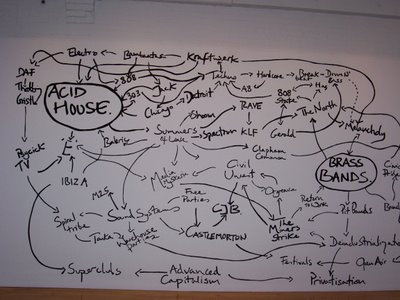 Electro
Bambaataa
Kraftwerk
DAF
Throbbing
Gristle
ACID
HOUSE.
808
303
Jack
Chicago
Detroit
Techno
Hardcore
Break-
beat
Drum n'
Bass
A3
808
State
Hag
The North
Melancholy
Shoom
RAVE
Summer
of Love
Spectrum
KLF
Gerald
Psychick
TV
E
Balearic
IBIZA
Clapham
Common
BRASS
BANDS
Media
Civil
Unrest
M25
Free
Parties
CJB
Orgreave
Return
to Work
Spiral
Tribe
Sound Systems
Tonka
Warehouse
parties
CASTLEMORTON
The
Miners
Strike
Deindustrialization
Superclubs
Advanced
Capitalism
Festivals
Open Air
Privatisation